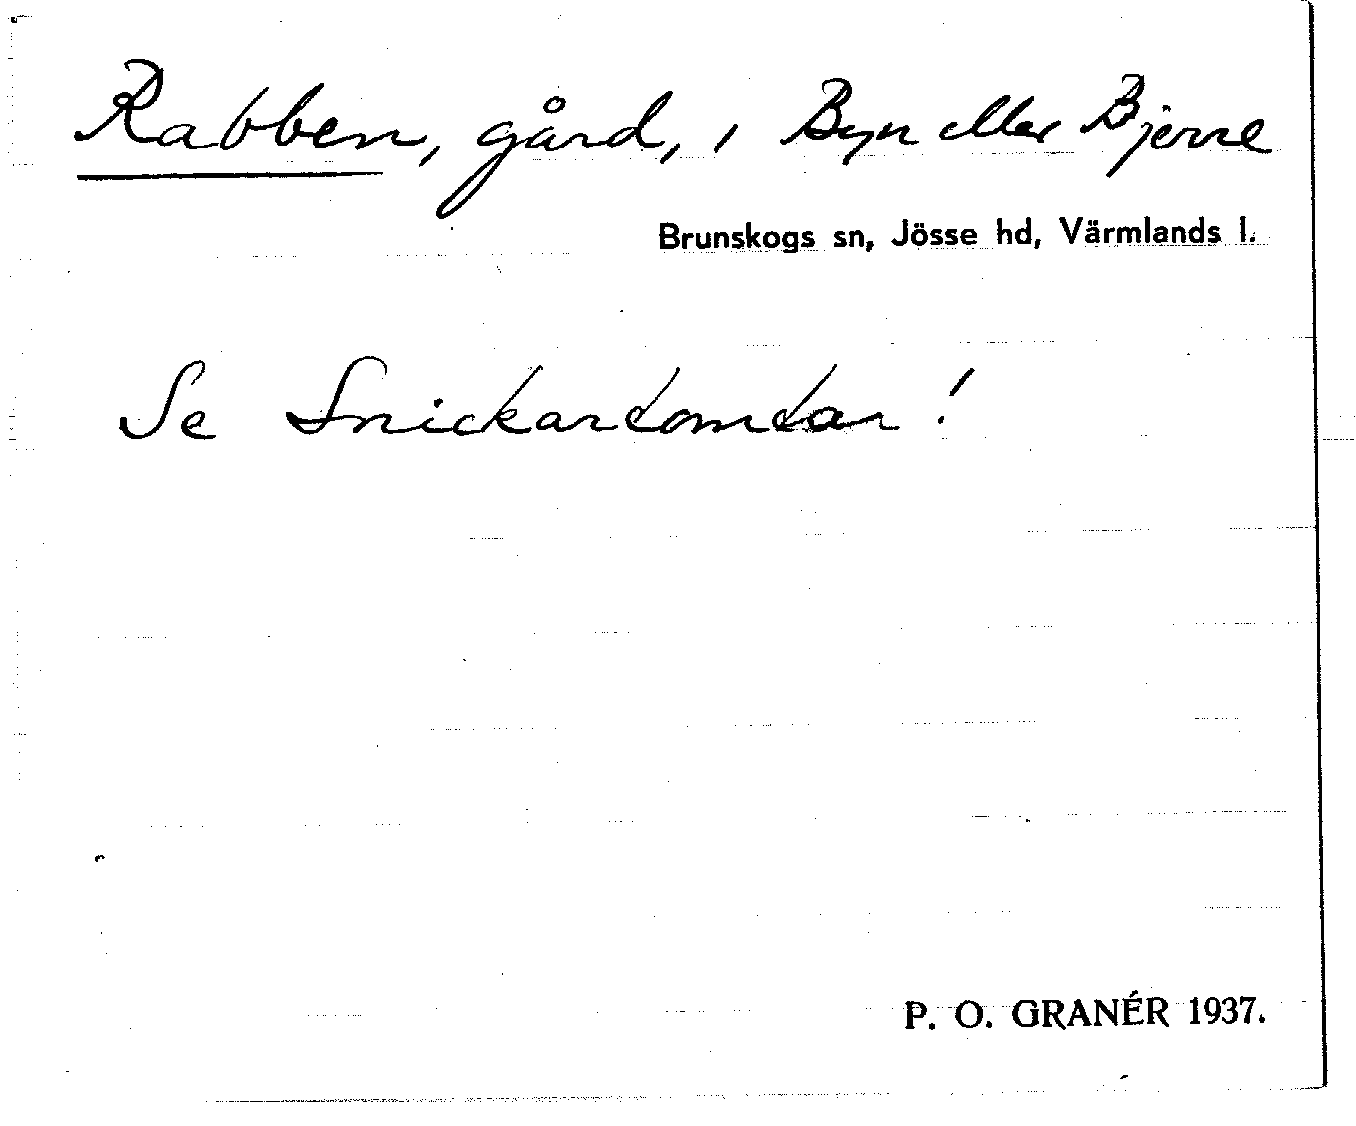 Rabben, gård, i Byn eller Bjerne
Brunskogs sn, Jösse hd, Värmlands l.
Se Snickartomtar!
P. O. GRANÉR 1937.